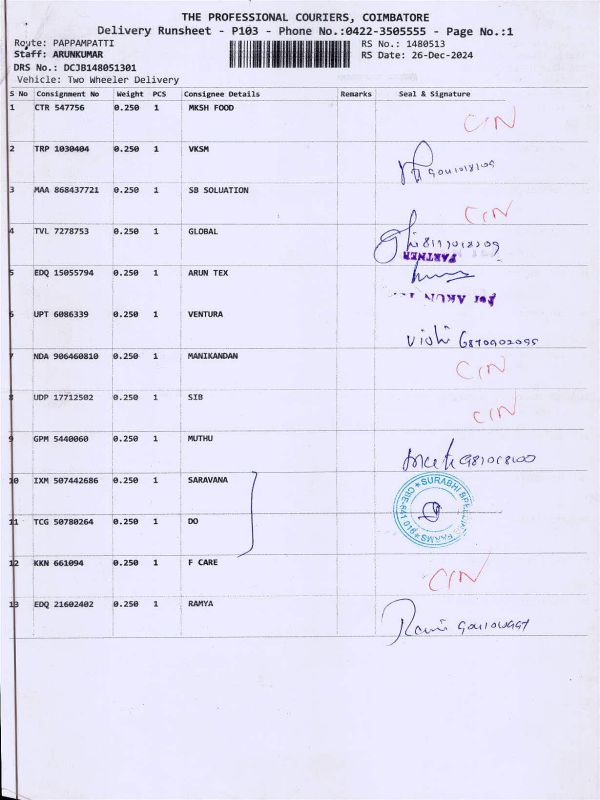 THE PROFESSIONAL COURIERS, COIMBATORE
Delivery Runsheet - P103 - Phone No.:0422-3505555 - Page No.:1
Route: PAPPAMPATTI
RS No.: 1480513
Staff: ARUNKUMAR
RS Date: 26-Dec-2024
DRS No.: DCJB148051301
Vehicle: Two Wheeler Delivery
S No Consignment No Weight PCS Consignee Details Remarks Seal & Signature
1 CTR 547756 0.250 1 MKSH FOOD CIN
2 TRP 1030404 0.250 1 VKSM
3 MAA 868437721 0.250 1 SB SOLUATION CIN
4 TVL 7278753 0.250 1 GLOBAL
PARTNER
5 EDQ 15055794 0.250 1 ARUN TEX
for ARUN
6 UPT 6086339 0.250 1 VENTURA
7 NDA 906460810 0.250 1 MANIKANDAN CIN
8 UDP 17712502 0.250 1 SIB CIN
9 GPM 5440060 0.250 1 MUTHU
10 IXM 507442686 0.250 1 SARAVANA
SURABHI
11 TCG 50780264 0.250 1 DO
12 KKN 661094 0.250 1 F CARE CIN
13 EDQ 21602402 0.250 1 RAMYA